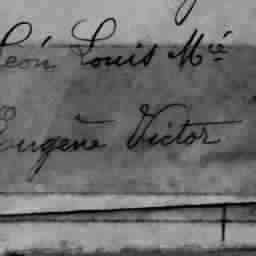 Léon Louis Mié
Eugène Victor